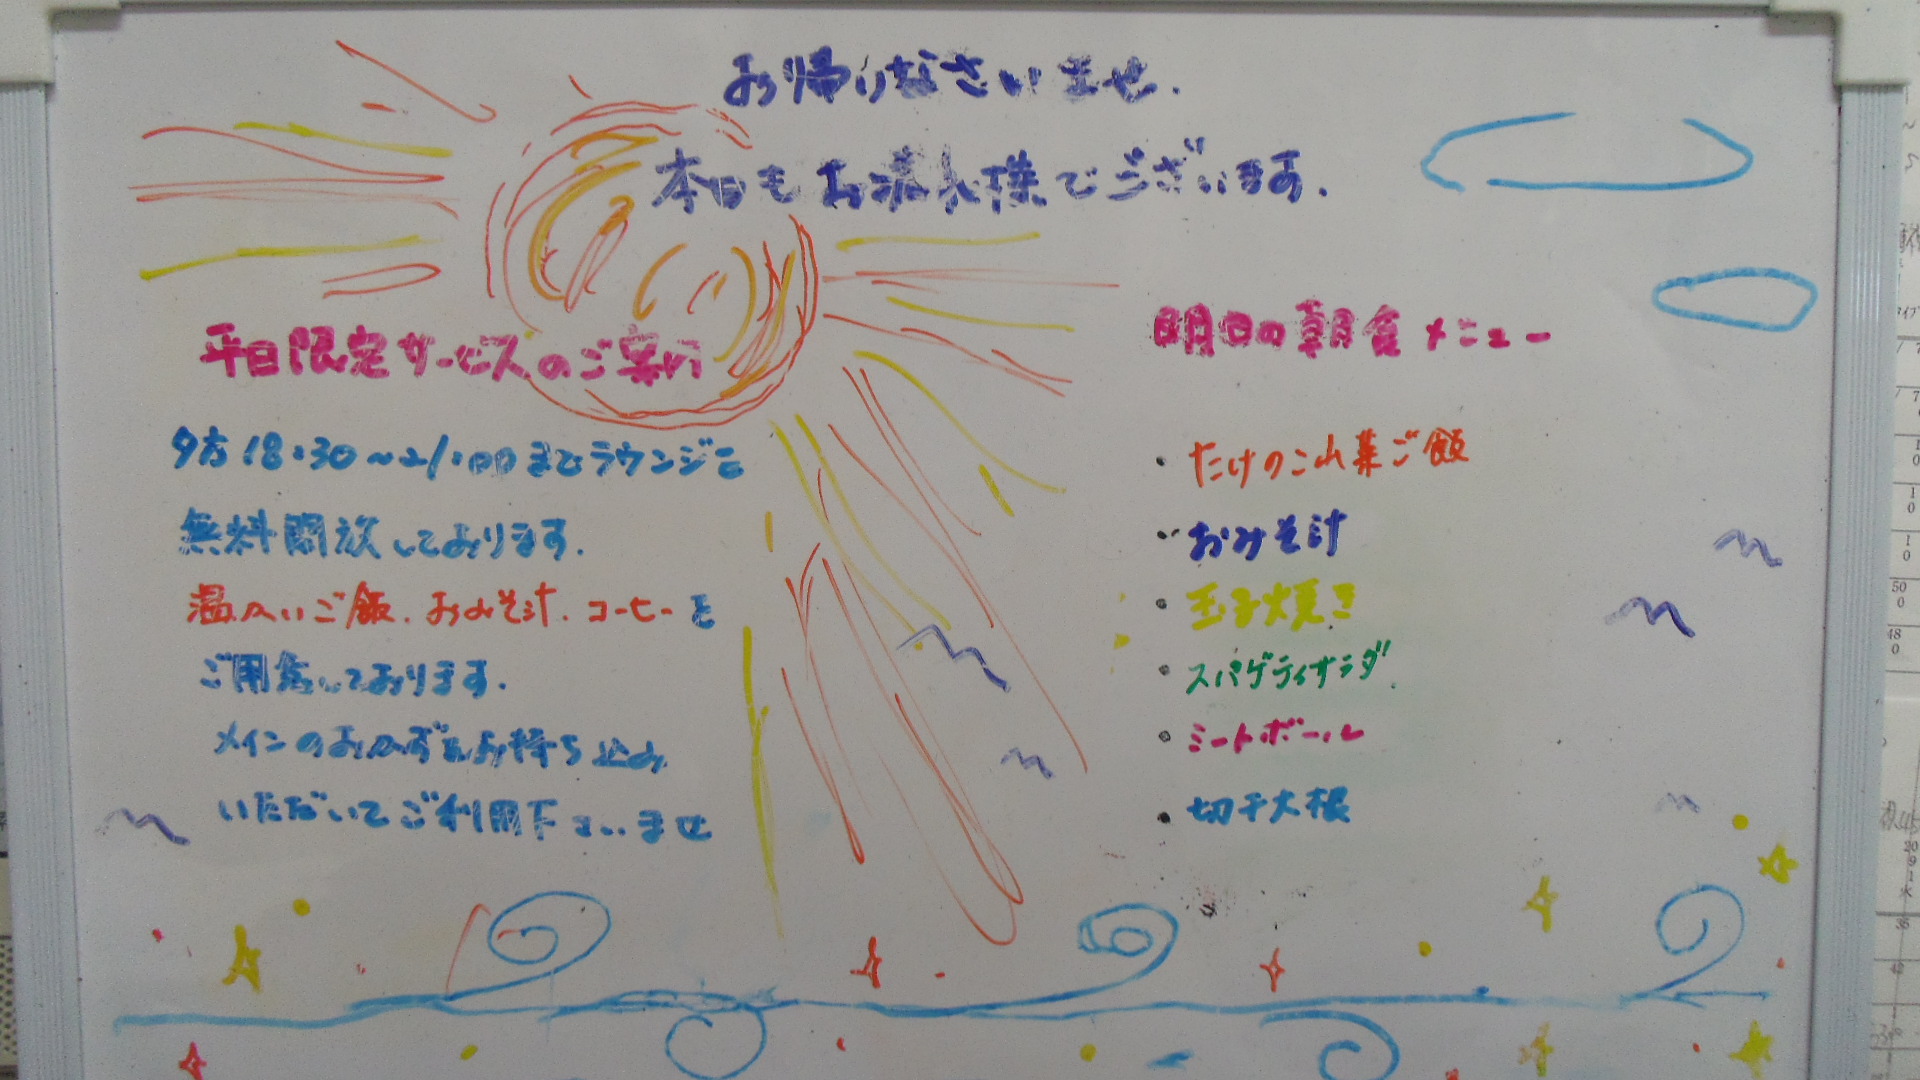 お帰りなさいませ.
本日もお疲れ様でございます.
平日限定サービスのご案内
夕方18:30～21:00までラウンジを
無料開放しております.
温かいご飯.おみそ汁.コーヒーを
ご用意しております.
メインのおかずをお持ち込み
いただいてご利用下さいませ
明日の朝食メニュー
・たけのこ山菜ご飯
・おみそ汁
・玉子焼き
・スパゲティサラダ.
・ミートボール
・切干大根